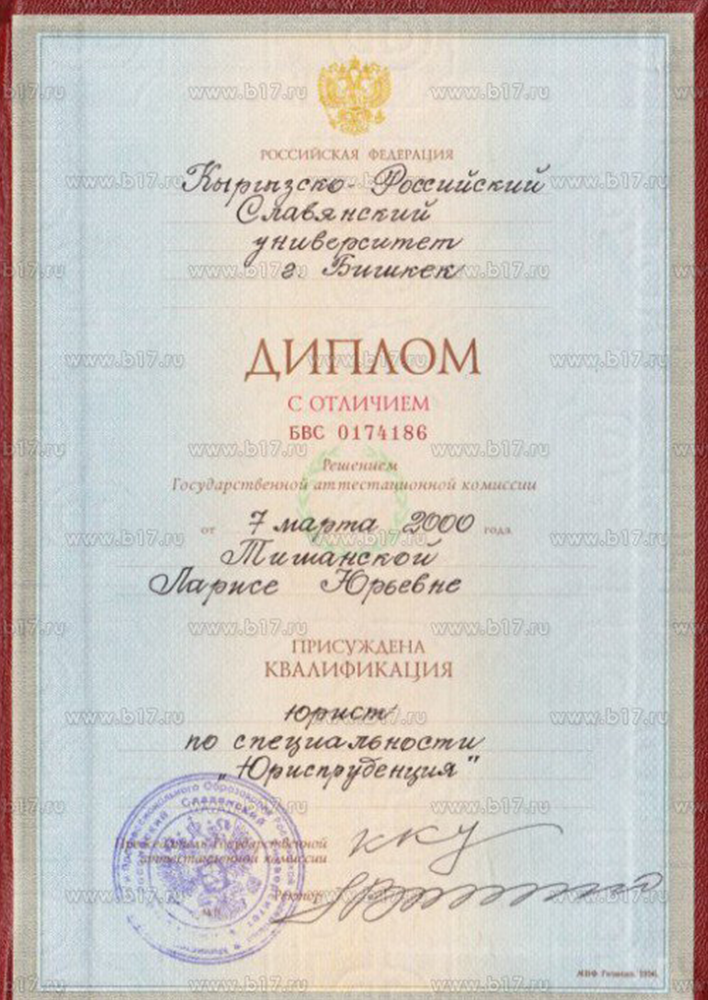 РОССИЙСКАЯ ФЕДЕРАЦИЯ
Кыргызско-Российский
Славянский
университет
г. Бишкек
ДИПЛОМ
С ОТЛИЧИЕМ
БВС 0174186
Решением
Государственной аттестационной комиссии
от 7 марта 2000 года
Тишанской
Ларисе Юрьевне
ПРИСУЖДЕНА
КВАЛИФИКАЦИЯ
юрист
по специальности
"Юриспруденция"
Председатель Государственной
аттестационной комиссии
Ректор
www.b17.ru